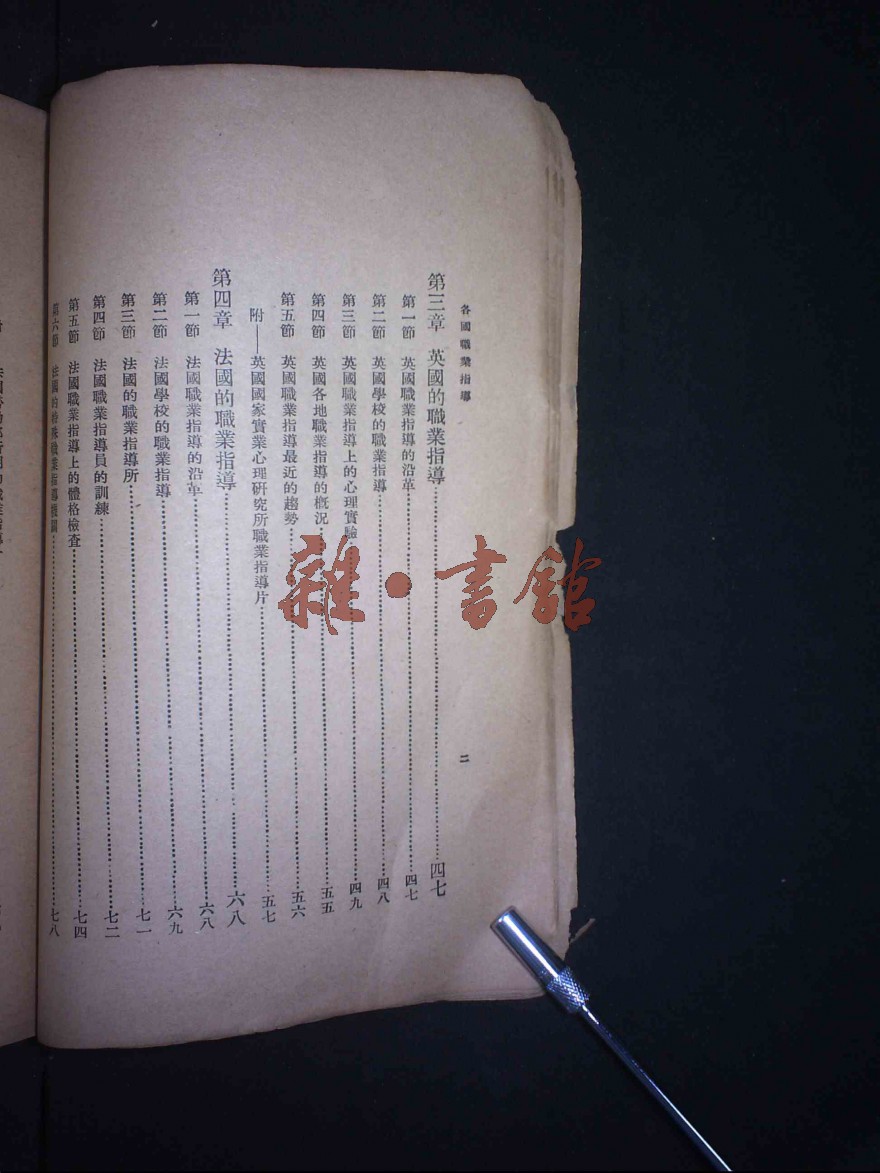 各國職業指導
二
第三章 英國的職業指導……四七
第一節 英國職業指導的沿革……四七
第二節 英國學校的職業指導……四八
第三節 英國職業指導上的心理實驗……四九
第四節 英國各地職業指導的概況……五五
第五節 英國職業指導最近的趨勢……五六
附——英國國家實業心理研究所職業指導片……五七
第四章 法國的職業指導……六八
第一節 法國職業指導的沿革……六八
第二節 法國學校的職業指導……六九
第三節 法國的職業指導所……七一
第四節 法國職業指導員的訓練……七二
第五節 法國職業指導上的體格檢查……七四
第六節 法國的特殊職業指導機關……七八
雜·書館